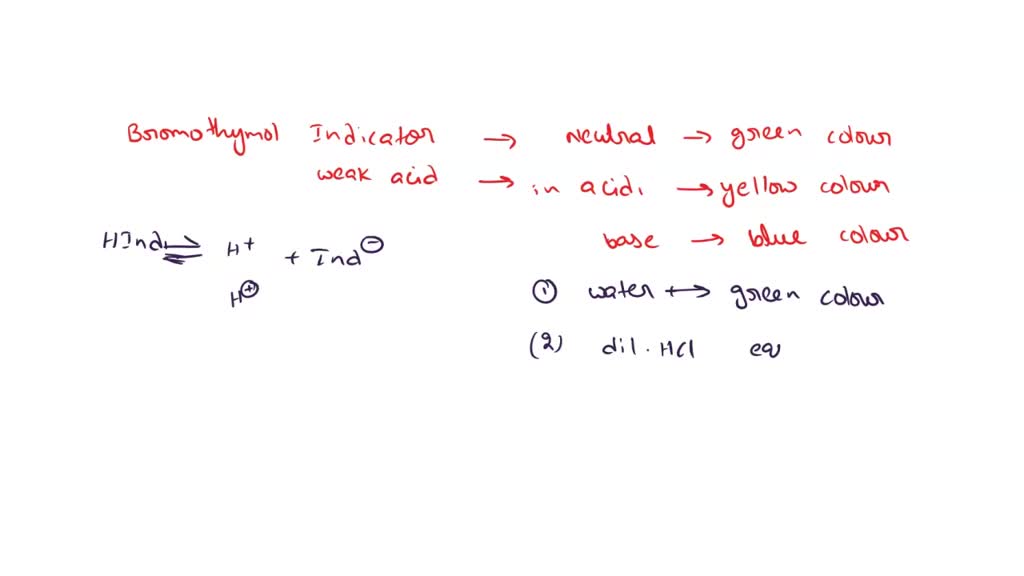 Bromothymol Indicator → Neutral → green colour
weak acid → in acid, → yellow colour
base → blue colour
HInd ⇌ H+ + Ind⊖
H⊕
① water ↦ green colour
(2) dil. HCl eq